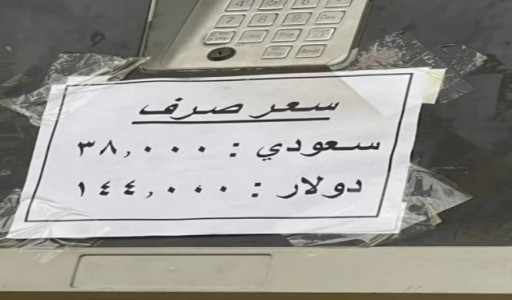 سعر صرف
سعودي : ٣٨,٠٠٠
دولار : ١٤٤,٠٠٠